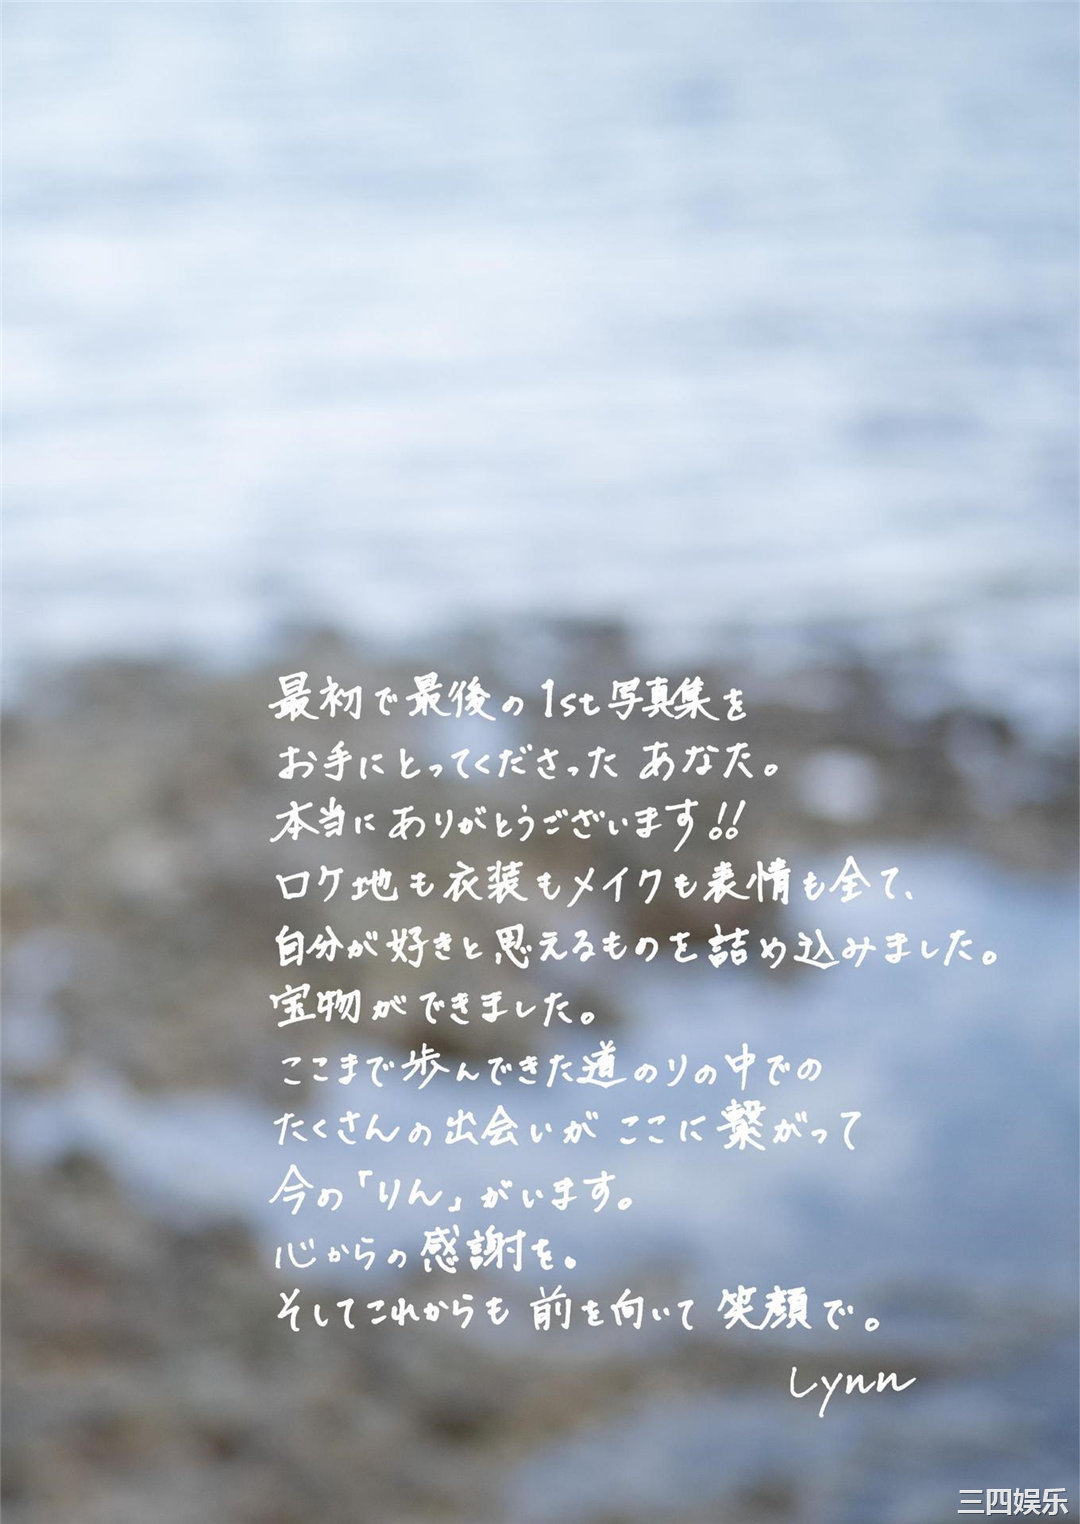 最初で最後の1st写真集を
お手にとってくださった あなた。
本当にありがとうございます!!
ロケ地も衣装もメイクも表情も全て、
自分が好きと思えるものを詰め込みました。
宝物ができました。
ここまで歩んできた道のりの中での
たくさんの出会いが ここに繋がって
今の「りん」がいます。
心からの感謝を。
そしてこれからも 前を向いて 笑顔で。
Lynn
三四娱乐